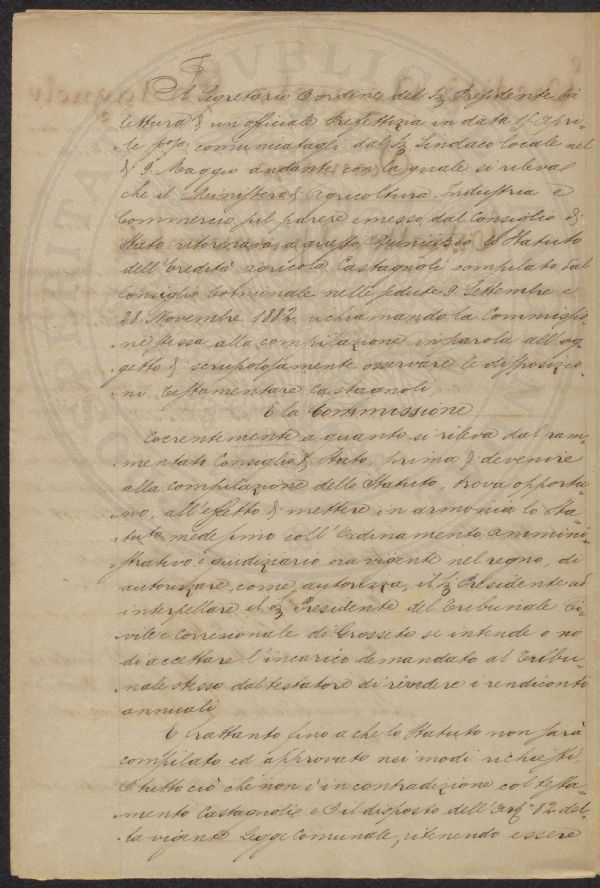 Il Segretario d'ordine del Sig. Presidente dà
lettura di un officiale Prefettizia in data 17 Apri-
le p.p. comunicatagli dal Sig. Sindaco locale nel
dì 9. Maggio andante con la quale si rileva
che il Ministero di Agricoltura. Industria e
Commercio sul parere emesso dal Consiglio di
Stato ritornava a questo Municipio lo Statuto
dell'Eredità agricola Castagnoli compilato dal
Consiglio Comunale nelle sedute 9. Settembre e
28. Novembre 1882. richiamando la Commissio-
ne stessa alla compilazione in parola all'og-
getto di scrupolosamente osservare le disposizio-
ni testamentare Castagnoli
E la Commissione
Coerentemente a quanto si rileva dal ram-
mentato Consiglio di Stato, prima di devenire
alla compilazione dello Statuto, trova opportu-
no, all'effetto di mettere in armonia lo Sta-
tuto medesimo coll'Ordinamento Ammini-
strativo e giudiziario ora vigente nel regno, di
autorizzare, come, autorizza, il Sig. Presidente ad
interpellare il Sig. Presidente del Tribunale Ci-
vile e Correzionale di Grosseto se intende o no
di accettare l'incarico demandato al Tribu-
nale stesso dal testatore di rivedere i rendiconti
annuali
E frattanto fino a che lo Statuto non sarà
compilato ed approvato nei modi richiesti,
e tutto ciò che non è in contradizione col testa-
mento Castagnoli e il disposto dell'Art. 82. del-
la vigente Legge Comunale, ritenendo essere